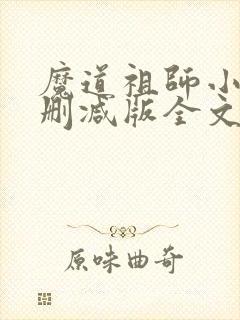 魔道祖師小
刪減版全文
原味曲奇